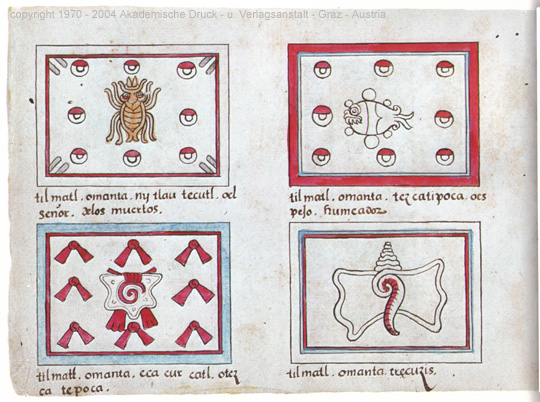 copyright 1970 - 2004 Akademische Druck - u. Verlagsanstalt - Graz - Austria
tilmatl. omanta. nytlau tecutl. oel
señor. delos muertos.
tilmatl. omanta. tezcatipoca. oes
pejo. humeador
tilmatl. omanta. eca cuz catl. otez
ca tepoca.
tilmatl. omanta. tecuzis.